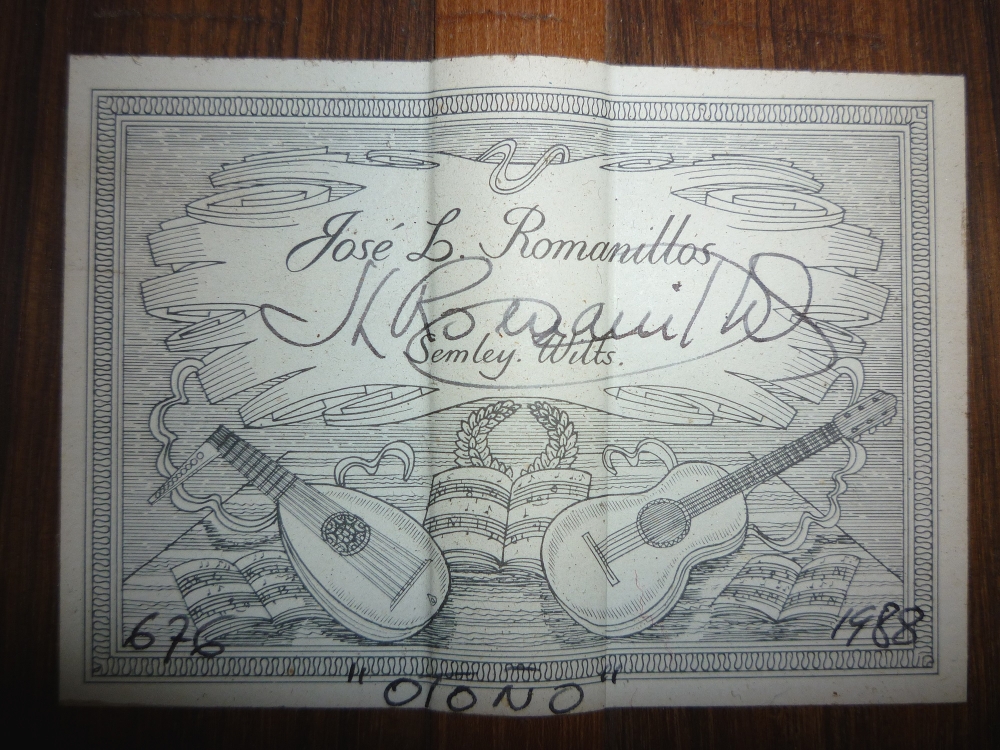 José L. Romanillos
JL Romanillos
Semley. Wilts.
676
1988
"OTONO"